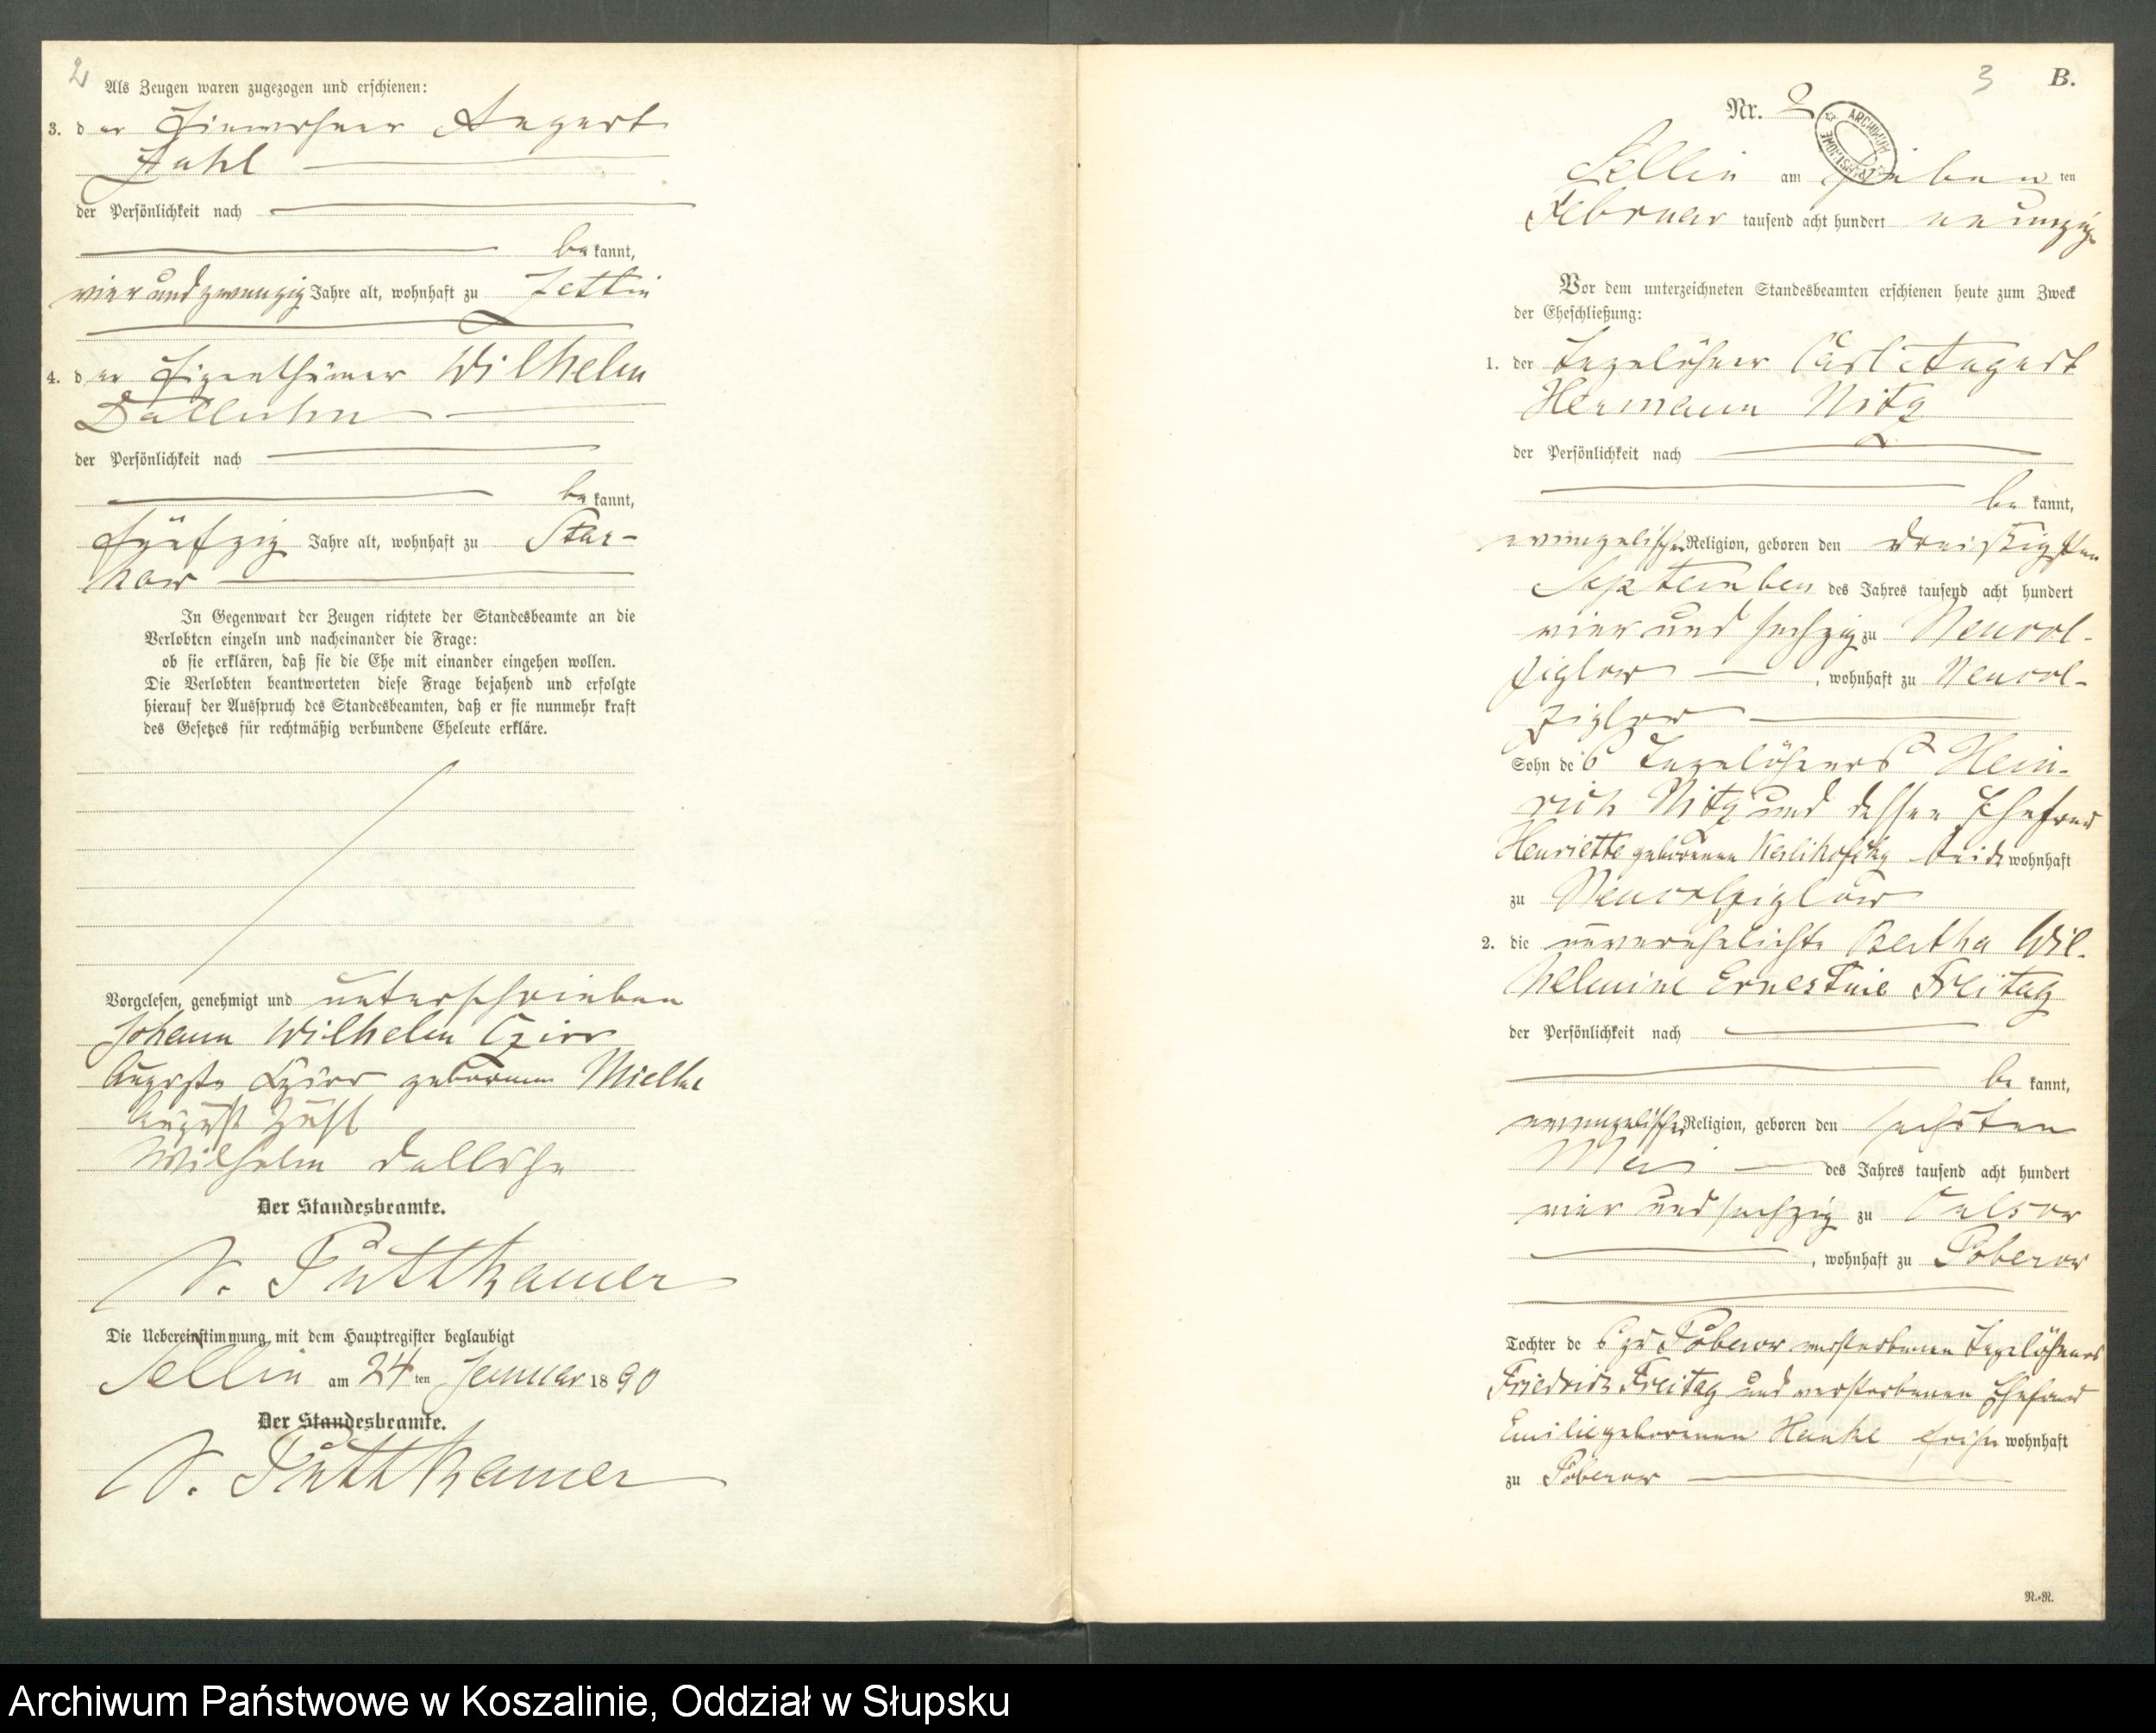 2
Als Zeugen waren zugezogen und erschienen:
3. der Einwohner August
Zuhl
der Persönlichkeit nach
bekannt,
vier und zwanzig Jahre alt, wohnhaft zu Jettin
4. der Eigenthümer Wilhelm
Dalluhn
der Persönlichkeit nach
bekannt,
fünfzig Jahre alt, wohnhaft zu Star-
kow
In Gegenwart der Zeugen richtete der Standesbeamte an die
Verlobten einzeln und nacheinander die Frage:
ob sie erklären, daß sie die Ehe mit einander eingehen wollen.
Die Verlobten beantworteten diese Frage bejahend und erfolgte
hierauf der Ausspruch des Standesbeamten, daß er sie nunmehr kraft
des Gesetzes für rechtmäßig verbundene Eheleute erkläre.
Vorgelesen, genehmigt und unterschrieben
Johann Wilhelm Czirr
Auguste Czirr geborenen Mielke
August Zuhl
Wilhelm Dalluhn
Der Standesbeamte.
v. Puttkamer
Die Uebereinstimmung mit dem Hauptregister beglaubigt
Sellin am 24 ten Januar 18 90
Der Standesbeamte.
v. Puttkamer
3 B.
Nr. 2
ARCHIWUM PAŃSTWOWE
Sellin am sieben ten
Februar tausend acht hundert neunzig
Vor dem unterzeichneten Standesbeamten erschienen heute zum Zweck
der Eheschließung:
1. der Tagelöhner Carl August
Hermann Nitz
der Persönlichkeit nach
be kannt,
evangelischer Religion, geboren den dreißigsten
September des Jahres tausend acht hundert
vier und sechzig zu Neukol-
ziglow, wohnhaft zu Neukol-
ziglow
Sohn des Tagelöhners Hein-
rich Nitz und dessen Ehefrau
Henriette geborenen beide wohnhaft
zu Neukolziglow
2. die unverehelichte Bertha Wil-
helmine Ernestine Freitag
der Persönlichkeit nach
be kannt,
evangelischer Religion, geboren den sechsten
Mai des Jahres tausend acht hundert
vier und sechzig zu
, wohnhaft zu Poberow
Tochter des zu Poberow verstorbenen Tagelöhners
Friedrich Freitag und verstorbenen Ehefrau
Emilie geborenen Hanke früher wohnhaft
zu Poberow
R.-R.
Archiwum Państwowe w Koszalinie, Oddział w Słupsku